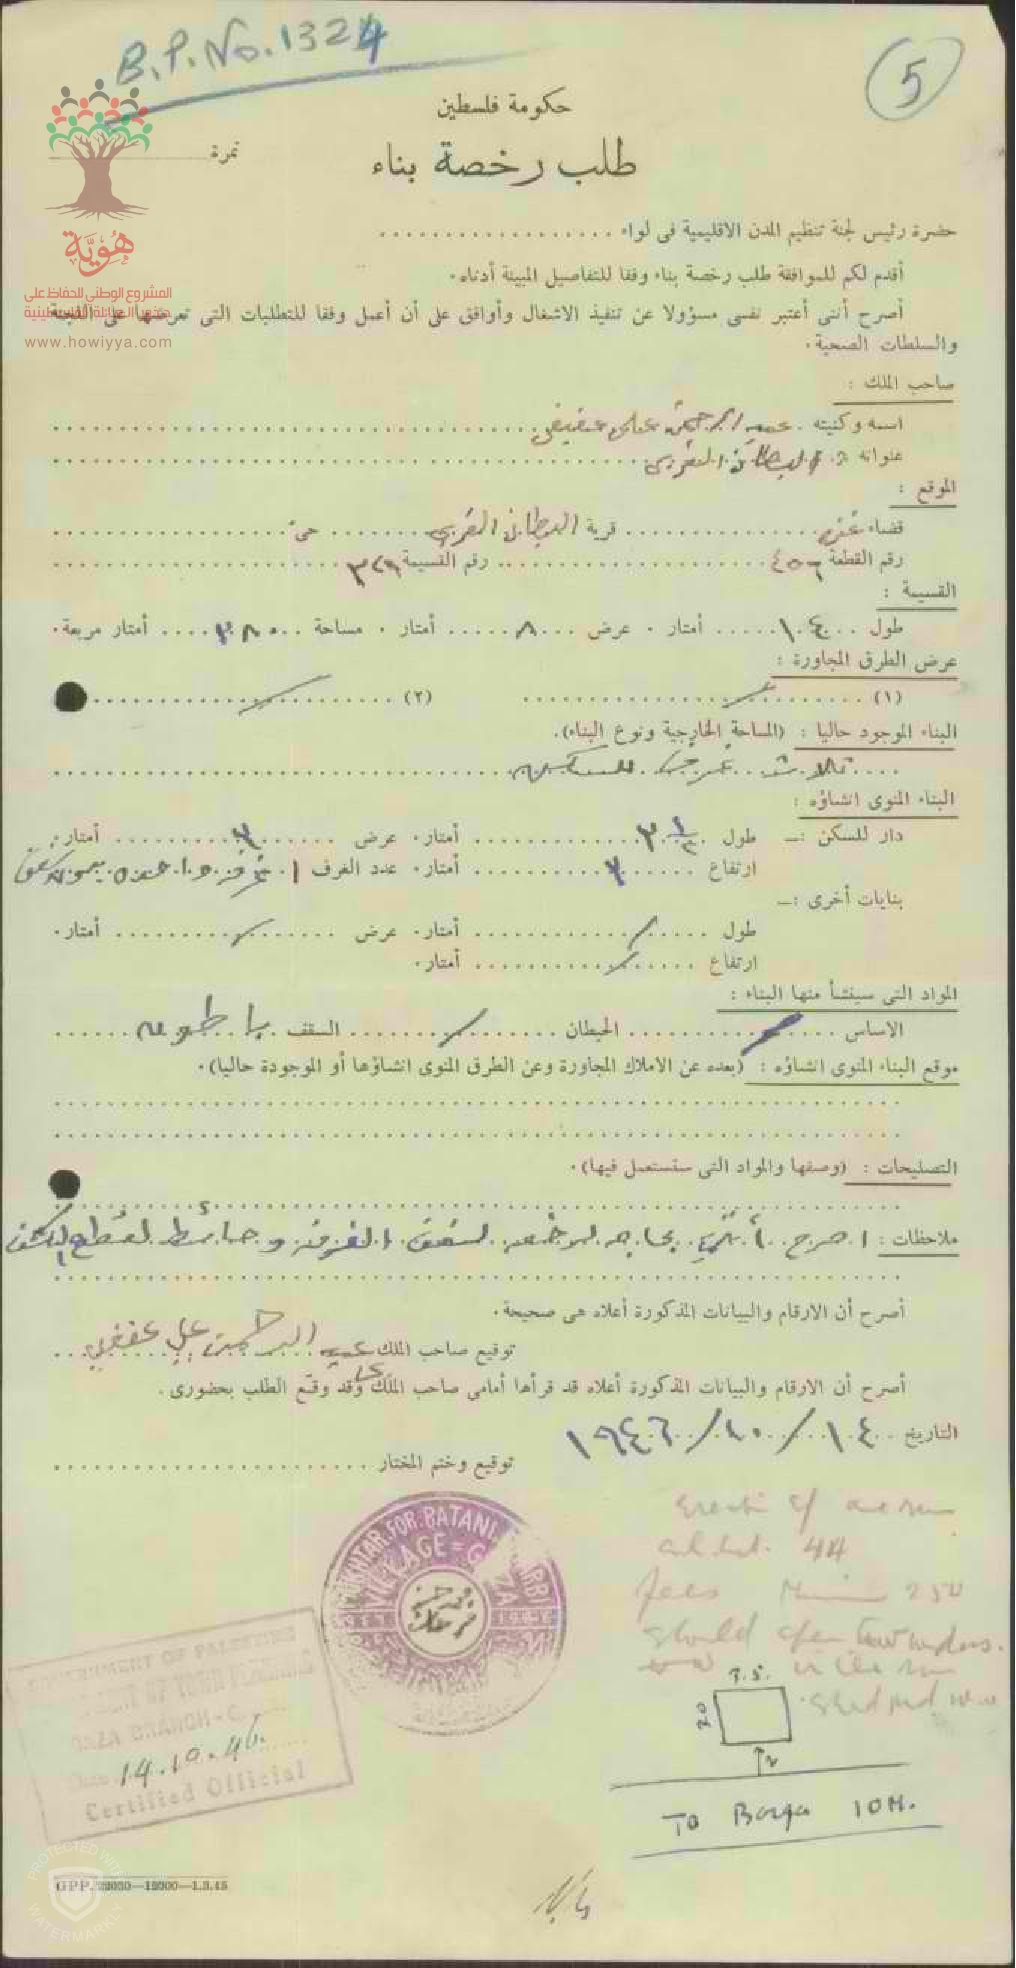 B.P. No. 1324
5
حكومة فلسطين
طلب رخصة بناء
نمرة
هُوِيَّة
المشروع الوطني للحفاظ على
جذور العائلة الفلسطينية
www.howiyya.com
حضرة رئيس لجنة تنظيم المدن الاقليمية فى لواء
أقدم لكم للموافقة طلب رخصة بناء وفقا للتفاصيل المبينة أدناه.
أصرح أننى أعتبر نفسى مسؤولا عن تنفيذ الاشغال وأوافق على أن أعمل وفقا للمتطلبات التى تعرضها على اللجنة
والسلطات الصحية.
صاحب الملك :
اسمه وكنيته عبد الرحمن على عفيفي
عنوانه البطاني الغربي
الموقع :
قضاء غزه قرية البطاني الغربي حى
رقم القطعة ٤٥٦ رقم القسيمة ٣٢٩
القسيمة :
طول ١٤ أمتار. عرض ٨ أمتار. مساحة أمتار مربعة.
عرض الطرق المجاورة :
(١) (٢)
البناء الموجود حاليا : (المساحة الخارجية ونوع البناء).
ثلاث غرف للسكن
البناء المنوى انشاؤه :
دار للسكن :— طول ٣ ١/٢ أمتار. عرض أمتار.
ارتفاع أمتار. عدد الغرف ١ غرفه واحده
بنايات أخرى :—
طول أمتار. عرض أمتار.
ارتفاع أمتار.
المواد التى سينشأ منها البناء :
الاساس الحيطان السقف باطون
موقع البناء المنوى انشاؤه : (بعده عن الاملاك المجاورة وعن الطرق المنوى انشاؤها أو الموجودة حاليا).
التصليحات : (وصفها والمواد التى ستستعمل فيها).
ملاحظات : اصرح بحاجه لسقف الغرفة
أصرح أن الارقام والبيانات المذكورة أعلاه هى صحيحة.
توقيع صاحب الملك عبد الرحمن علي عفيفي
أصرح أن الارقام والبيانات المذكورة أعلاه قد قرأها أمامى صاحب الملك وقد وقّع الطلب بحضورى.
التاريخ ١٤/١٠/١٩٤٦
توقيع وختم المختار
MUKHTAR FOR BATANI
VILLAGE = GAZA
GOVERNMENT OF PALESTINE
DEPARTMENT OF TOWN PLANNING
GAZA BRANCH
Date 14.10.46.
Certified Official
fees 250
should
3.5.
20
2
To Barqa 10M.
GPP. —12000—1.3.45
PROTECTED WITH
WATERMARKLY